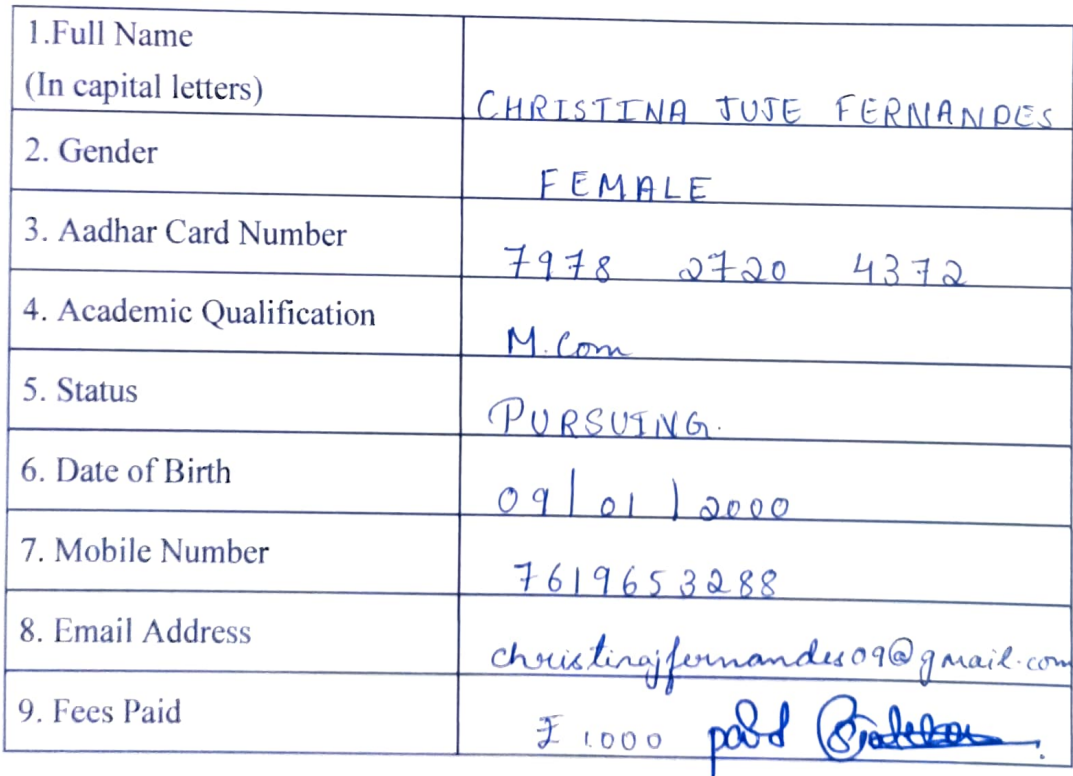 1.Full Name
(In capital letters)
CHRISTINA JUJE FERNANDES
2. Gender
FEMALE
3. Aadhar Card Number
7978 2720 4372
4. Academic Qualification
M.Com
5. Status
PURSUING.
6. Date of Birth
09/01/2000
7. Mobile Number
7619653288
8. Email Address
christinajfernandes09@gmail.com
9. Fees Paid
₹ 1000 paid